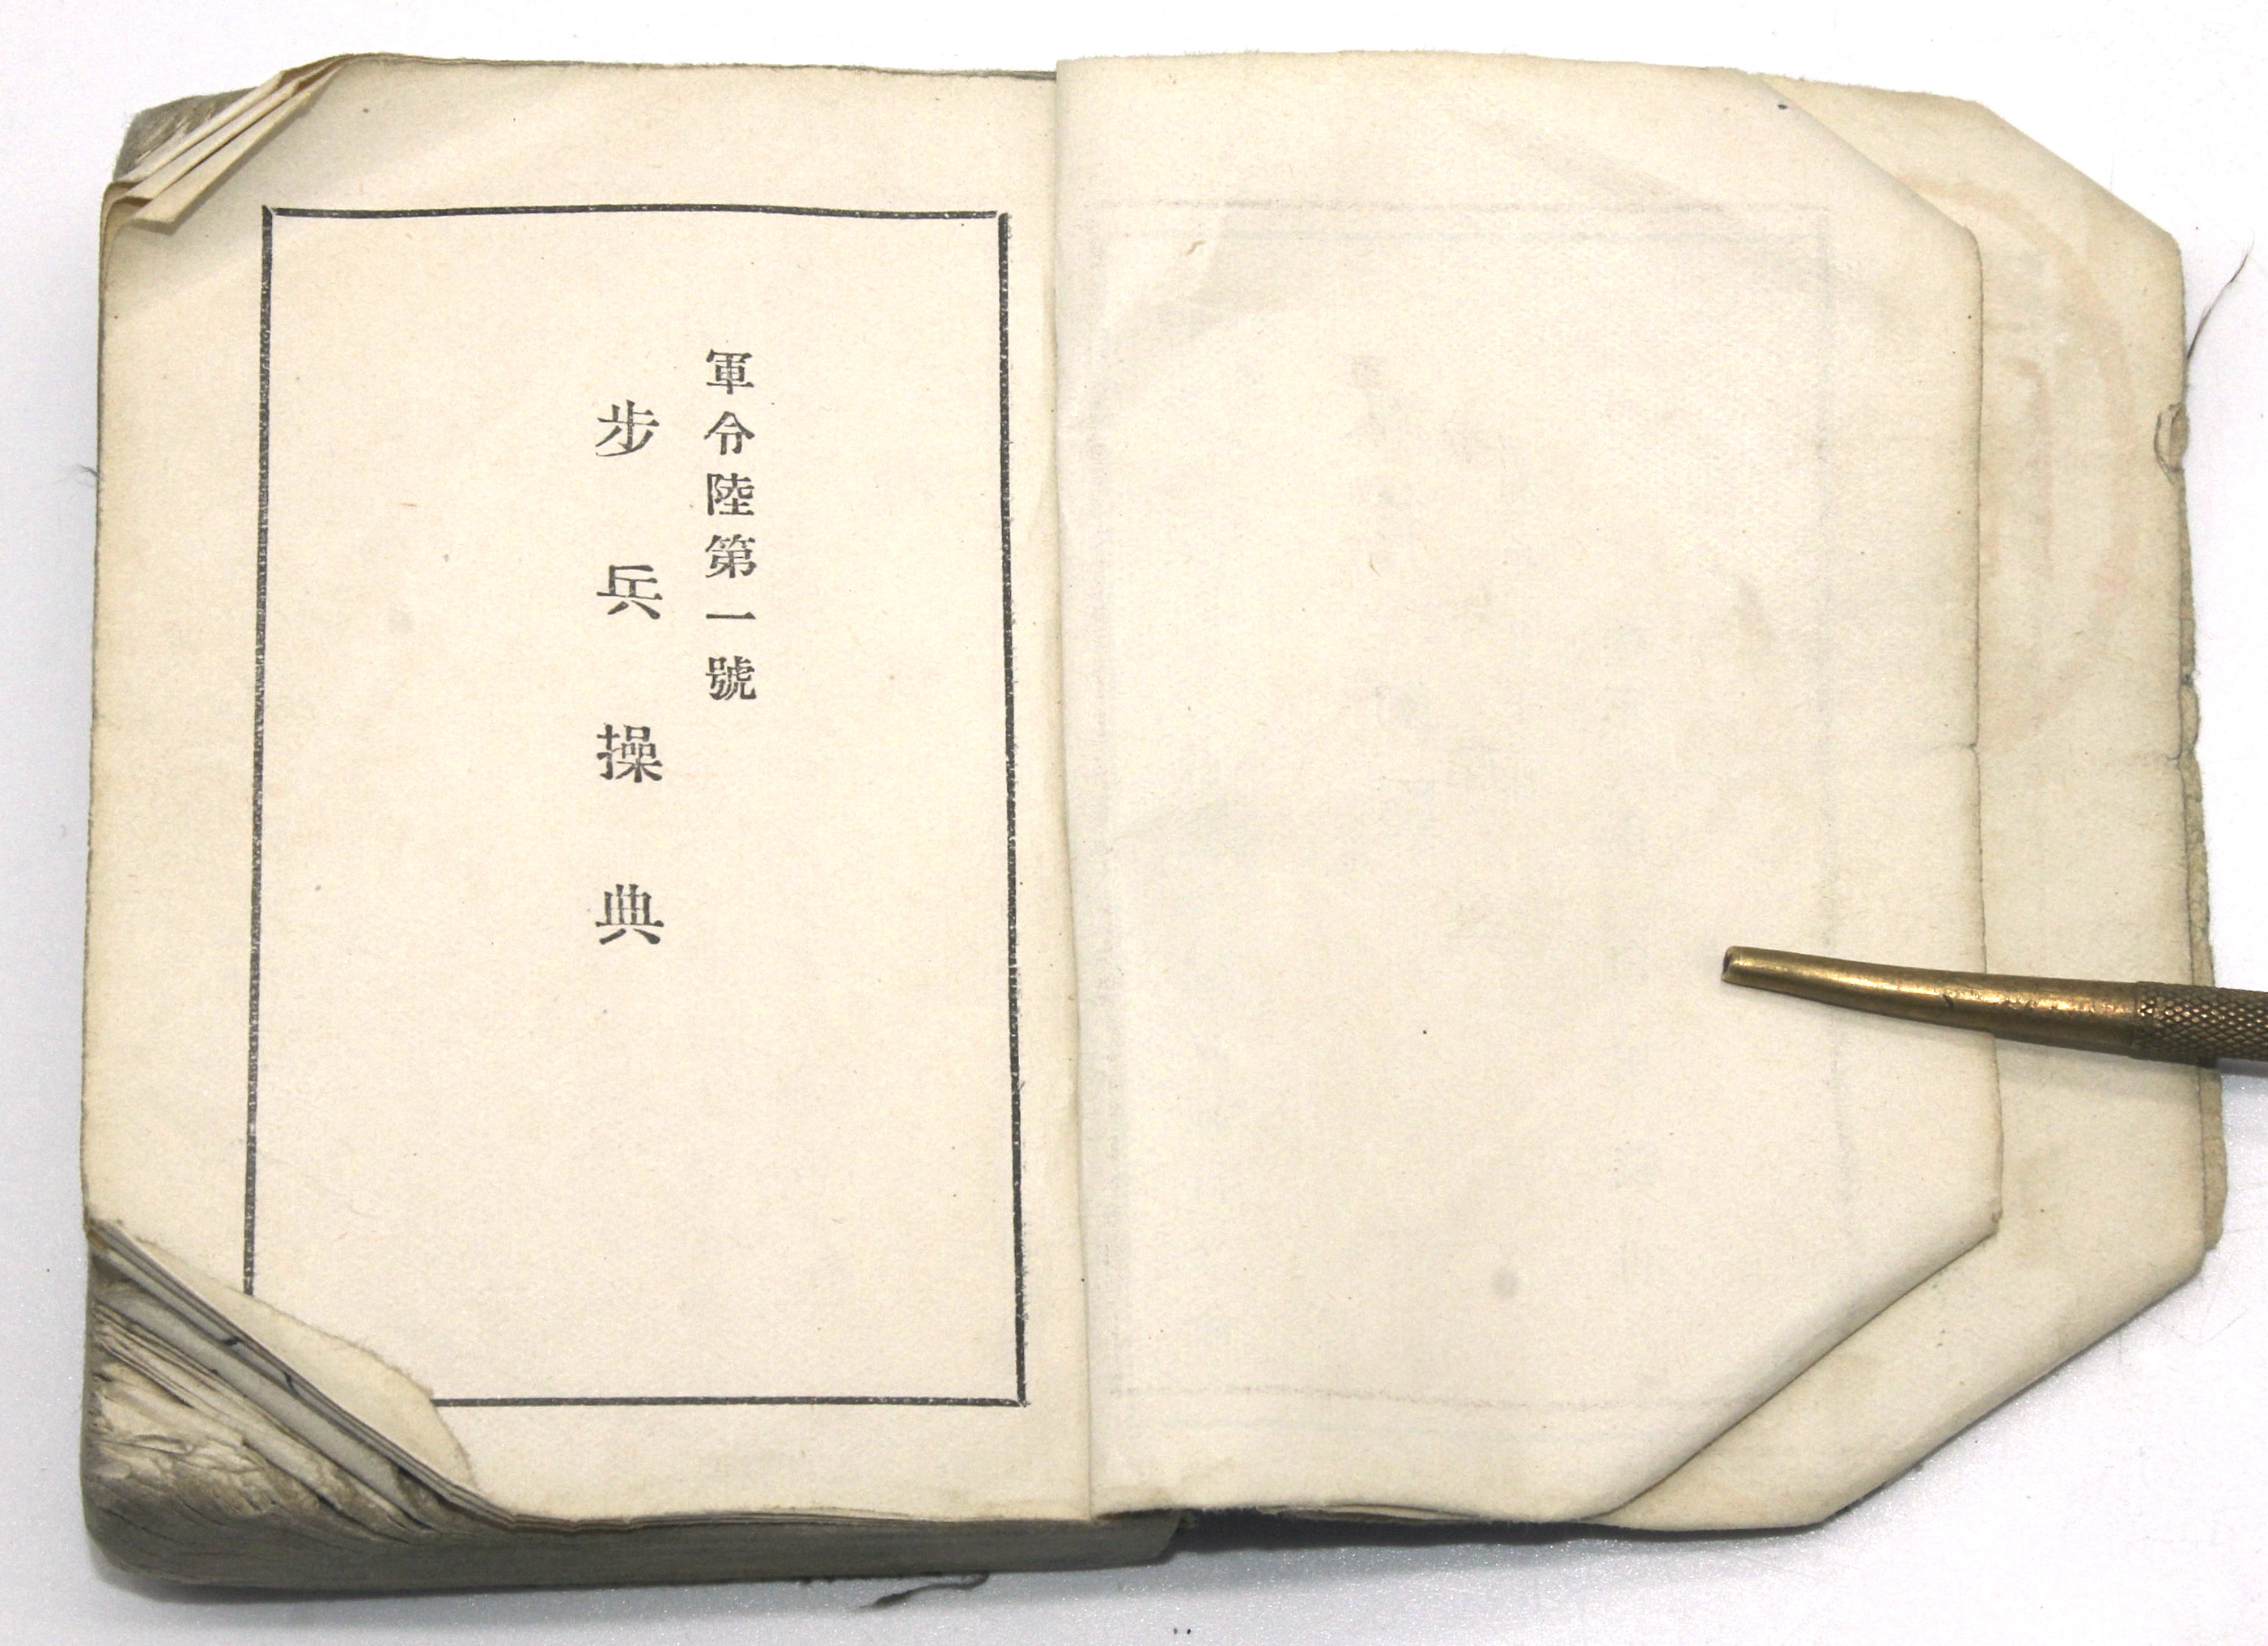 軍令陸第一號
步兵操典